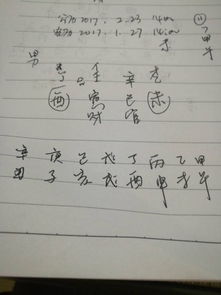 公历2017. 2. 23 14:00
农历2017. 1. 27 14:00
未
男
丁 壬 辛 乙
酉 寅 巳 未
财 官
辛 庚 己 戊 丁 丙 乙 甲
丑 子 亥 戌 酉 申 未 午